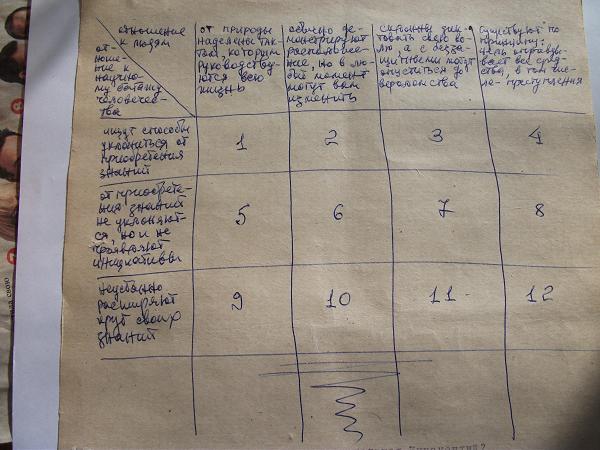 отношение
к людям
от-
ноше-
ние к
научно-
му
человечес-
тва
от природы
наделены так-
том, которым
руководству-
ются всю
жизнь
обычно де-
монстрируют
расположе-
ние, но в лю-
бой момент
могут вам
изменить
склонны дик-
товать свою во-
лю, а с безза-
щитными могут
опуститься до
вероломства
существуют по
принципу:
цель оправды-
вает все сред-
ства, в том чис-
ле - преступления
ищут способы
уклониться от
приобретения
знаний
1 2 3 4
от приобрете-
ния знаний
не уклоняют-
ся, но и не
проявляют
инициативы
5 6 7 8
неустанно
расширяют
круг своих
знаний
9 10 11 12